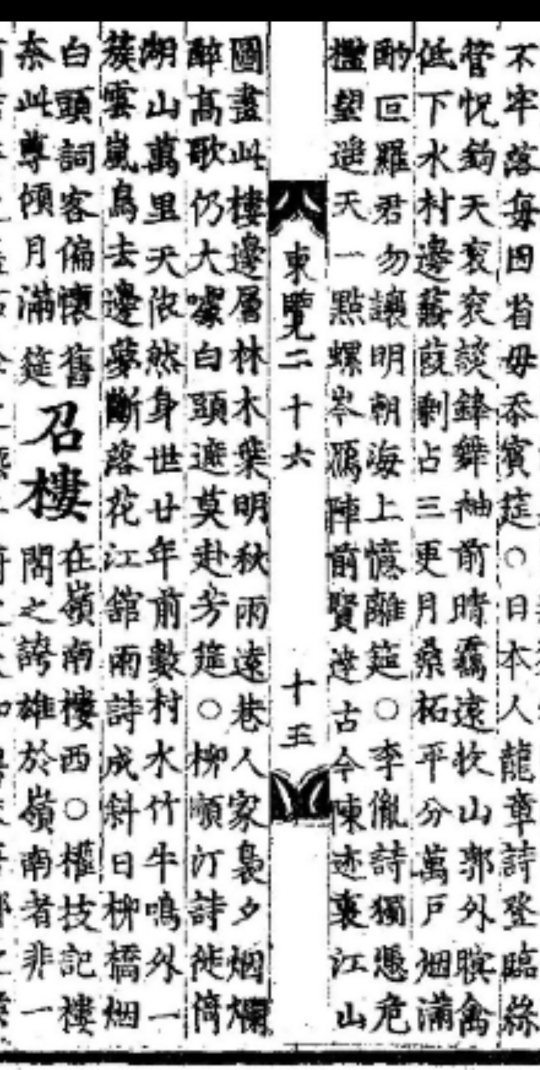 不牢落每因省母忝賓筵○日本人龍章詩登臨絲
管怳鈞天衮衮談鋒舞袖前晴靄遠收山郭外暝禽
低下水村邊蒹葭剩占三更月桑柘平分萬戶烟滿
酌叵羅君勿讓明朝海上憶離筵○李胤詩獨憑危
檻望遙天一點螺岑鴈陣前賢達古今陳迹裏江山
東覽二十六 十五
圖畫此樓邊層林木葉明秋雨遠巷人家裊夕烟爛
醉高歌仍大噱白頭遮莫赴芳筵○柳順汀詩徙倚
湖山萬里天依然身世廿年前數村水竹牛鳴外一
簇雲嵐鳥去邊夢斷落花江舘雨詩成斜日柳橋烟
白頭詞客偏懷舊
奈此尊傾月滿筵
召樓
在嶺南樓西○權技記樓
閣之誇雄於嶺南者非一